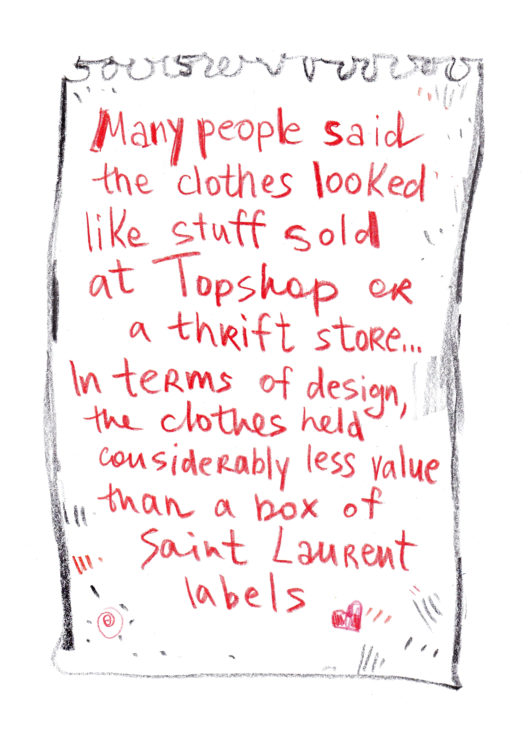 Many people said
the clothes looked
like stuff sold
at Topshop or
a thrift store...
In terms of design,
the clothes held
considerably less value
than a box of
Saint Laurent
labels